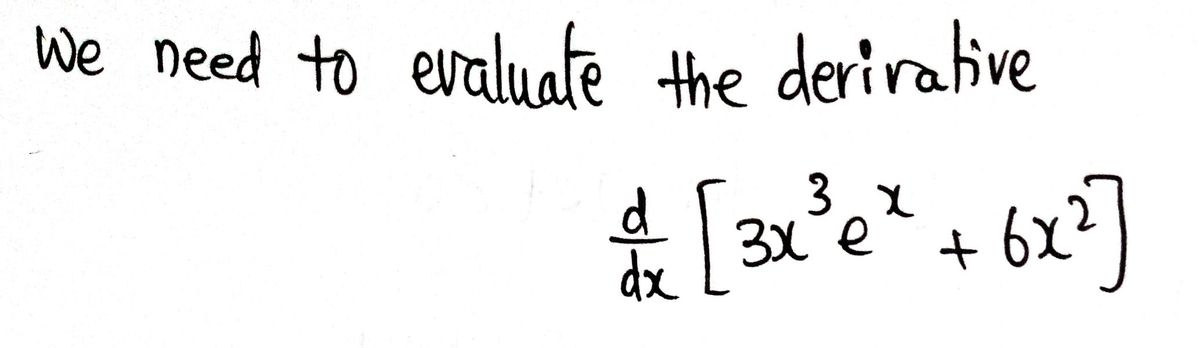 We need to evaluate the derivative
d/dx [3x³eˣ + 6x²]